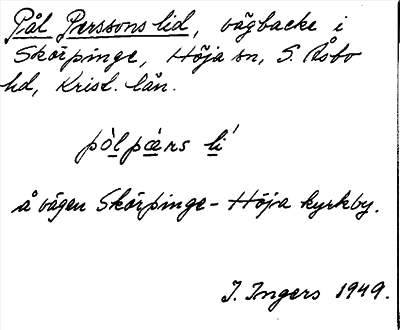 Pål Perssons lid, vägbacke i
Skörpinge, Höja sn, S. Åsbo
hd, Krist. län.
pòl pæns li´
å vägen Skörpinge - Höja kyrkby.
I. Ingers 1949.